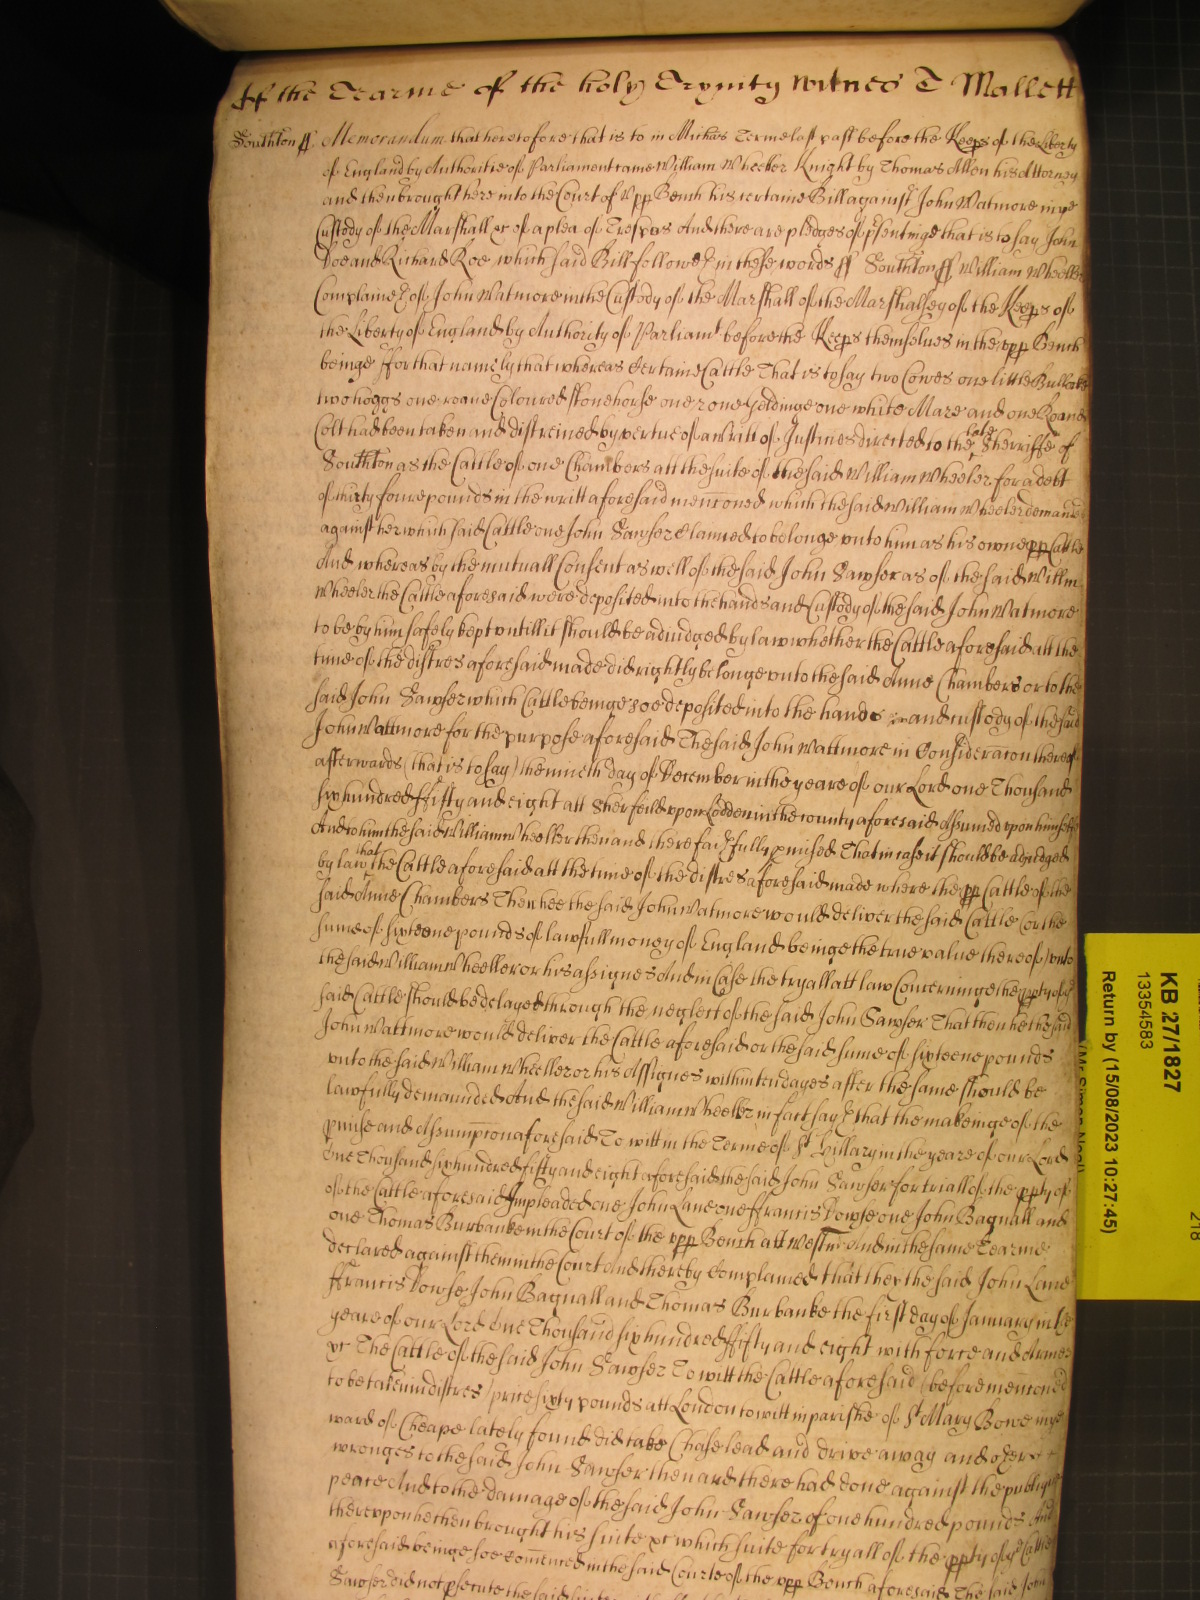 Of the Tearme of the holy Trynity Witnes T Mallett
Southton ss Memorandum that heretofore that is to in Michas Terme last past before the Keeps of the Liberty
of England by Authoritie of Parliament came William Wheeler Knight by Thomas Allen his Attorney
and then brought here into the Court of Upp Bench his certaine Bill against John Watmore in ye
Custody of the Marshall &c of a plea of Trespas And there are pledges of psentinge that is to say John
Doe and Richard Roe which said Bill followeth in these words ss Southton ss William Wheeler
Complaineth of John Watmore in the Custody of the Marshall of the Marshalsey of the Keeps of
the Liberty of England by Authority of Parliamt before the Keeps themselves in the upp Bench
beinge ffor that namely that whereas Certaine Cattle That is to say two Cowes one little Bullocke
two hoggs one roane Coloured stonehorse one geldinge one white Mare and one Roane
Colt had been taken and distreined by vertue of a Writt of Justines directed to the late Sherriffe of
Southton as the Cattle of one Chambers att the suite of the said William Wheeler for a debt
of thirty foure pounds in the writt aforesaid mencioned which the said William Wheeler demand
against her which said Cattle one John Sawser Claimed to belonge unto him as his owne pp Cattle
And whereas by the mutuall Consent as well of the said John Sawser as of the said Willm
Wheeler the Cattle aforesaid were deposited into the hands and Custody of the said John Watmore
to be by him safely kept untill it should be adiudged by law whether the Cattle aforesaid att the
time of the distres aforesaid made did rightly belonge unto the said Anne Chambers or to the
said John Sawser which Cattle beinge soe deposited into the hands and custody of the said
John Wattmore for the purpose aforesaid The said John Wattmore in Consideracon thereof
afterwards (that is to say) the nineth day of December in the yeare of our Lord one Thousand
six hundred ffifty and eight att Sherfeild upon Lodden in the county aforesaid Assumed upon himselfe
And to him the said William Wheeller then and there faithfully pmised That in case it should be adiudged
by law that the Cattle aforesaid att the time of the distres aforesaid made where the pp Cattle of the
said Anne Chambers Then hee the said John Watmore would deliver the said Cattle (or the
sume of sixteene pounds of lawfull money of England beinge the true value thereof) unto
the said William Wheeller or his assignes And in Case the tryall att law Concerninge the ppty of ye
said Cattle should be delayed through the neglect of the said John Sawser That then he the said
John Wattmore would deliver the Cattle aforesaid or the said sume of sixteene pounds
unto the said William Wheeller or his Assignes within ten dayes after the same should be
lawfully demaunded And the said William Wheeller in fact sayth that the makeinge of the
pmise and Assumption aforesaid To witt in the Terme of St Hillary in the yeare of our Lord
One Thousand six hundred fifty and eight aforesaid the said John Sawser for triall of the ppty of
of the Cattle aforesaid Impleaded one John Lane one ffrancis Dowse one John Bagnall and
one Thomas Burbanke in the Court of the upp Bench att Westmr And in the same Tearme
declared against them in the Court And thereby Complained that they the said John Lane
ffrancis Dowse John Bagnall and Thomas Burbanke the first day of January in the
yeare of our Lord One Thousand six hundred ffifty and eight with force and Armes
&c The Cattle of the said John Sawser To witt the Cattle aforesaid (before mencioned
to be taken in distres) price sixty pounds att London to witt in parishe of St Mary Bowe in ye
ward of Cheape lately found did take Chase lead and drive away and other
wronges to the said John Sawser then and there had done against the publique
peace And to the damage of the said John Sawser of one hundred pounds And
thereupon he then brought his suite &c which suite for tryall of the ppty of ye Cattle
aforesaid beinge soe Comenced in the said Courte of the upp Bench aforesaid The said John
Sawser did not psecute the said
KB 27/1827
13354583
Return by (15/08/2023 10:27:45)
218